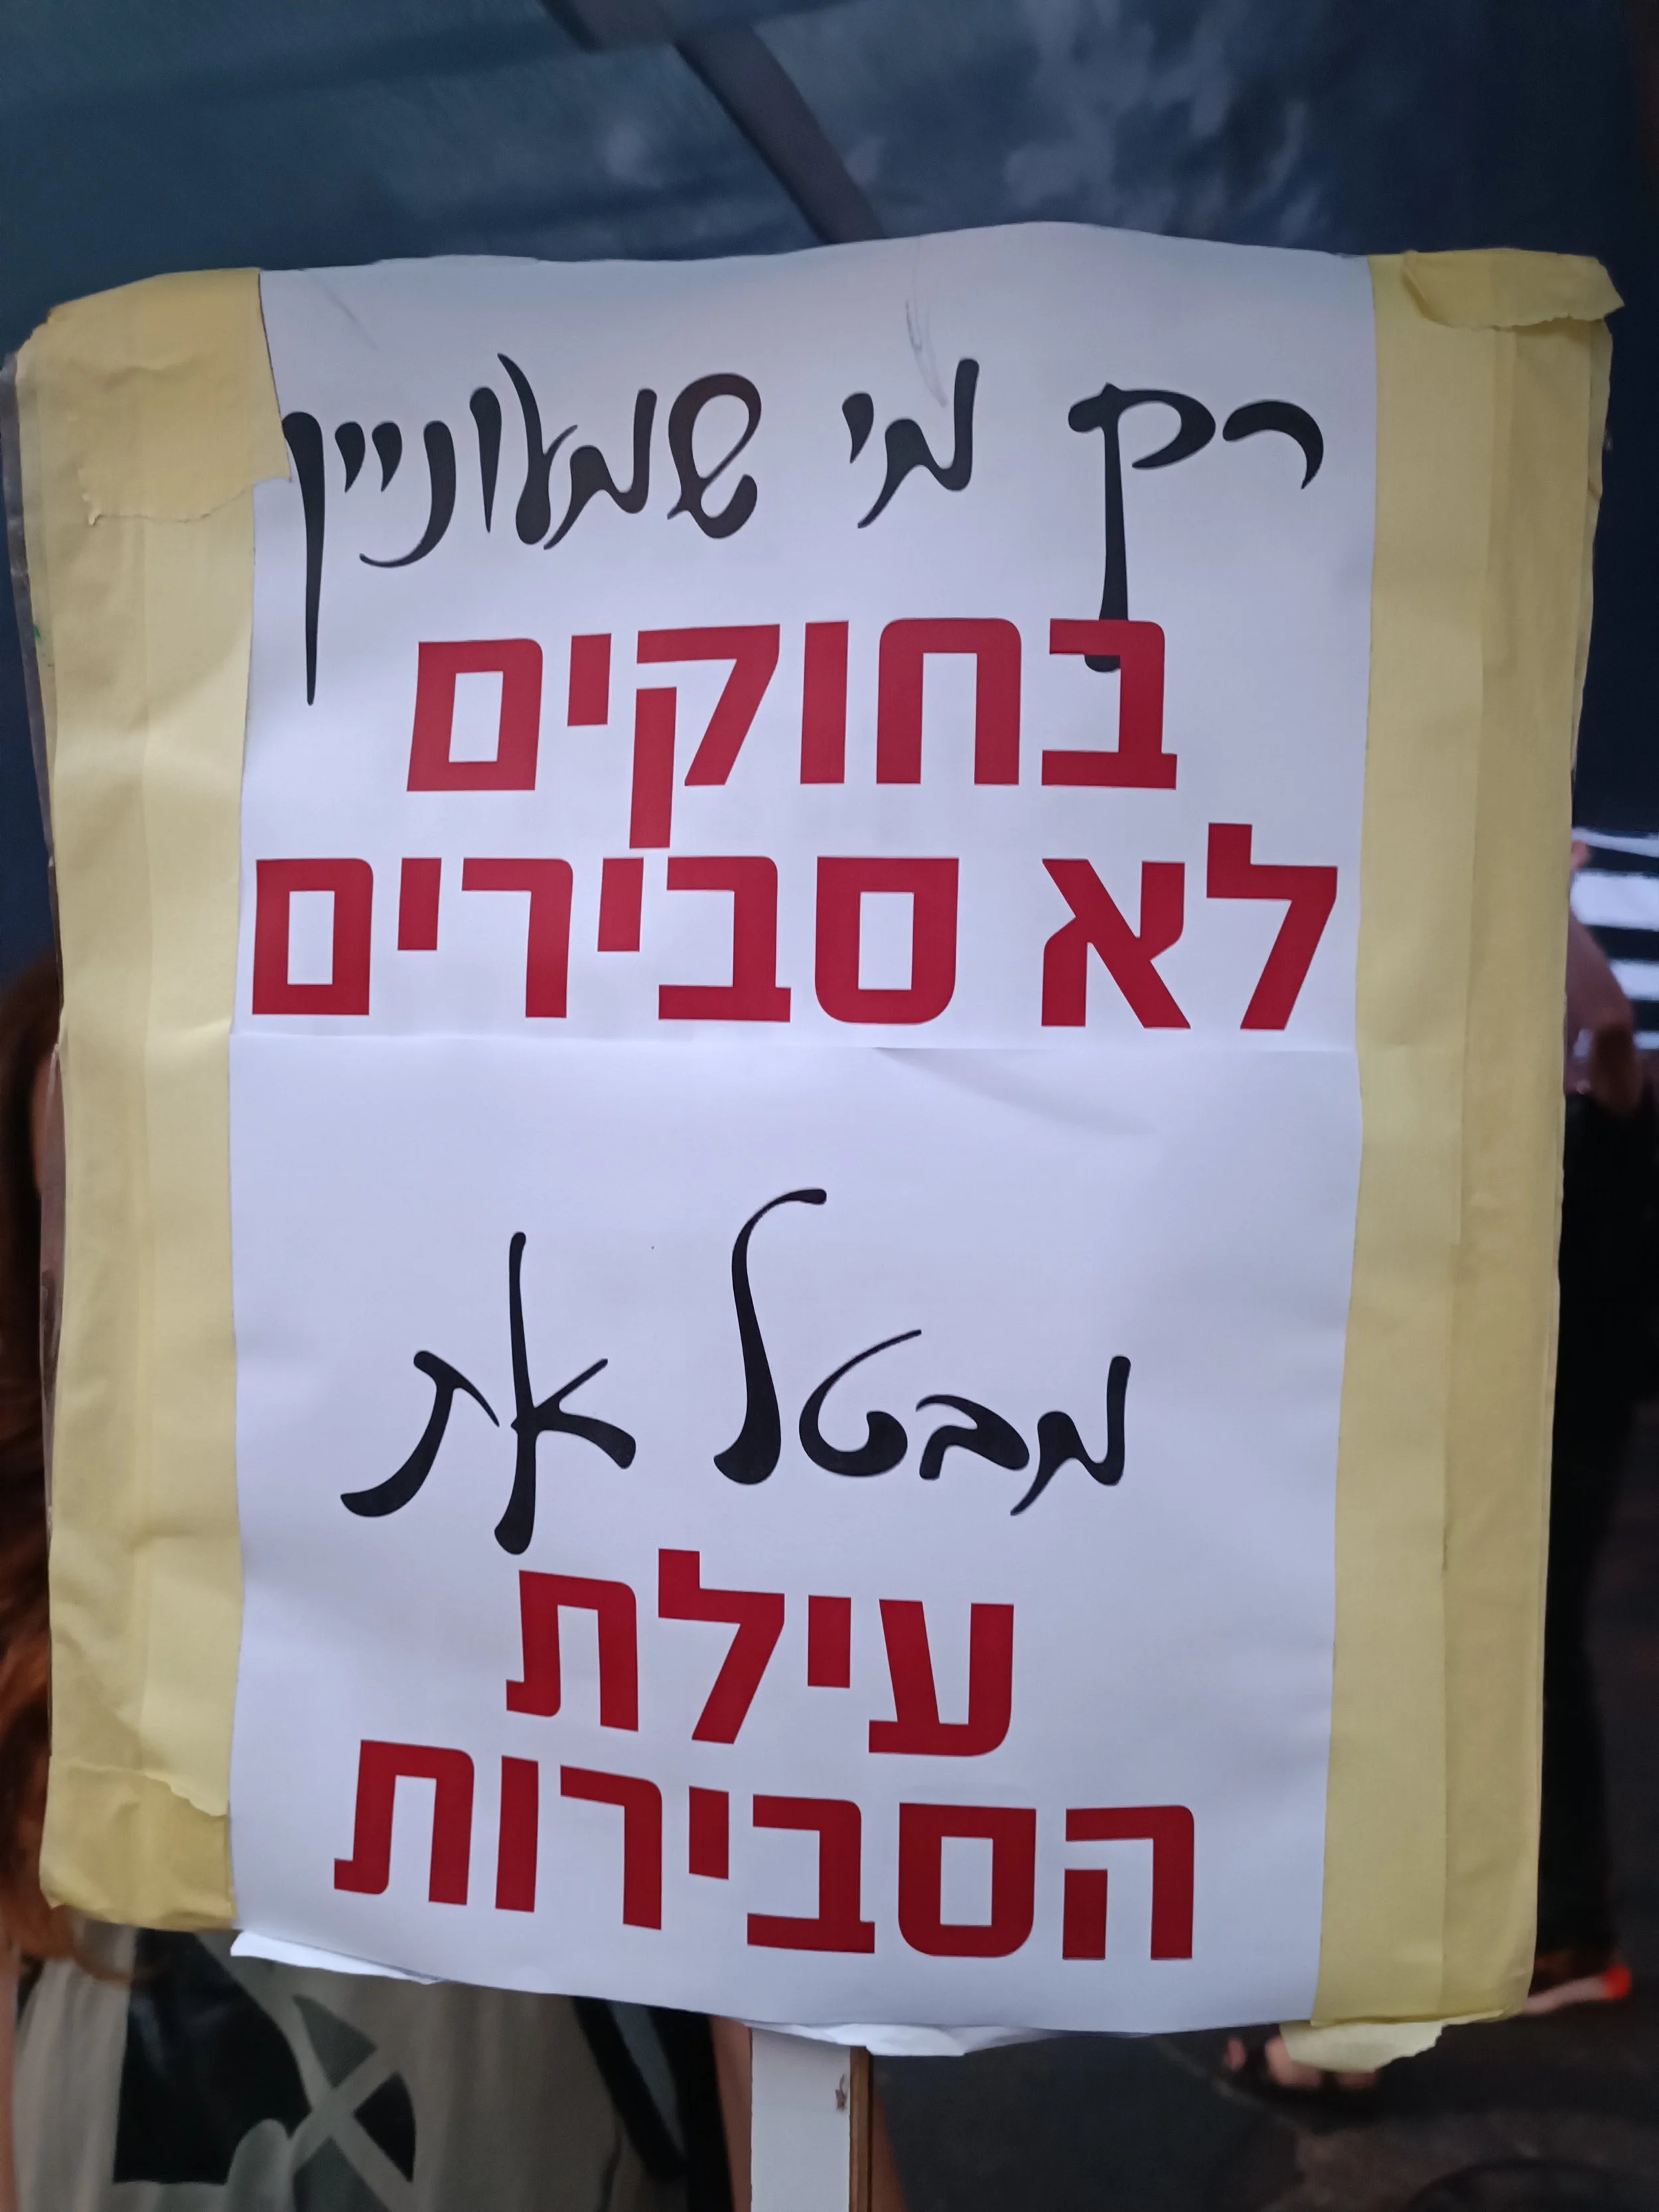 רק מי שמעוניין
בחוקים
לא סבירים
מבטל את
עילת
הסבירות